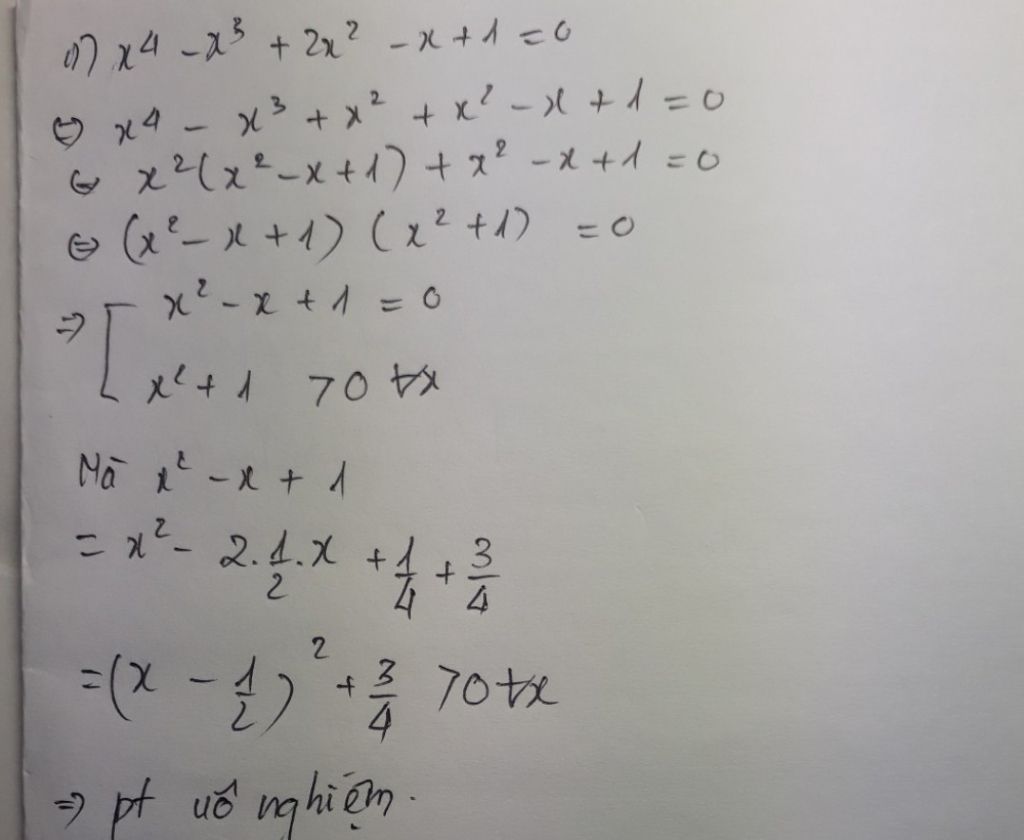 1) x⁴ - x³ + 2x² - x + 1 = 0
⇔ x⁴ - x³ + x² + x² - x + 1 = 0
⇔ x²(x² - x + 1) + x² - x + 1 = 0
⇔ (x² - x + 1) (x² + 1) = 0
⇒ [ x² - x + 1 = 0
x² + 1 > 0 ∀x
Mà x² - x + 1
= x² - 2.1/2.x + 1/4 + 3/4
= (x - 1/2)² + 3/4 > 0 ∀x
⇒ pt vô nghiệm.